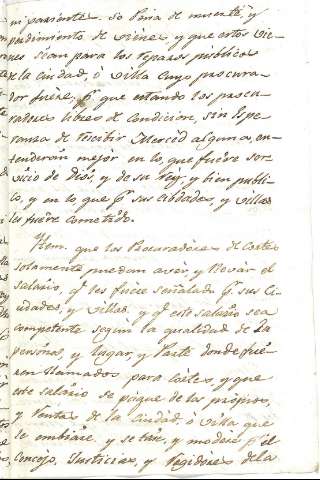 ni parientes. so Pena de muerte, y
perdimiento de vienes, y que estos vie-
nes sean para los reparos publicos
de la ciudad, ó villa cuyo procura-
dor fuere, y que estando los procu-
radores libres de condicion, sin Espe-
ranza de recibir Merced alguna, en-
tenderán mejor en lo, que fuere ser-
vicio de dios, y de su Rey, y bien publi-
co, y en lo que pr. sus cibdades, y villas
les fuere cometido.
Ytem. que los Procuradores de Cortes
solamente puedan aver, y llevar el
salario, qe. les fuere señalado pr. sus Ci-
udades, y villas, y qe. este salario sea
competente segun la qualidad de la
persona, y lugar, y Parte donde fue-
ren llamados para Cortes, y que
este salario se pague de los propios,
y rentas de la ciudad, ó villa que
le embiare, y se tase, y modere pr. el
Concejo, Justicias, y Regidores de la